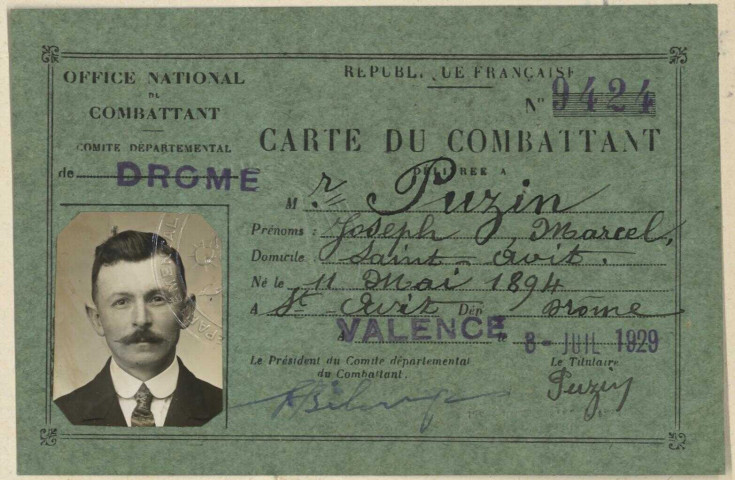 OFFICE NATIONAL
DU
COMBATTANT
COMITÉ DÉPARTEMENTAL
de DROME
RÉPUBLIQUE FRANÇAISE
N° 9424
CARTE DU COMBATTANT
DÉLIVRÉE A
M r Puzin
Prénoms : Joseph, Marcel,
Domicile Saint-Avit.
Né le 11 Mai 1894
A St Avit Dép Drôme
A VALENCE le 8- JUIL 1929
Le Président du Comité départemental
du Combattant.
Le Titulaire
Puzin